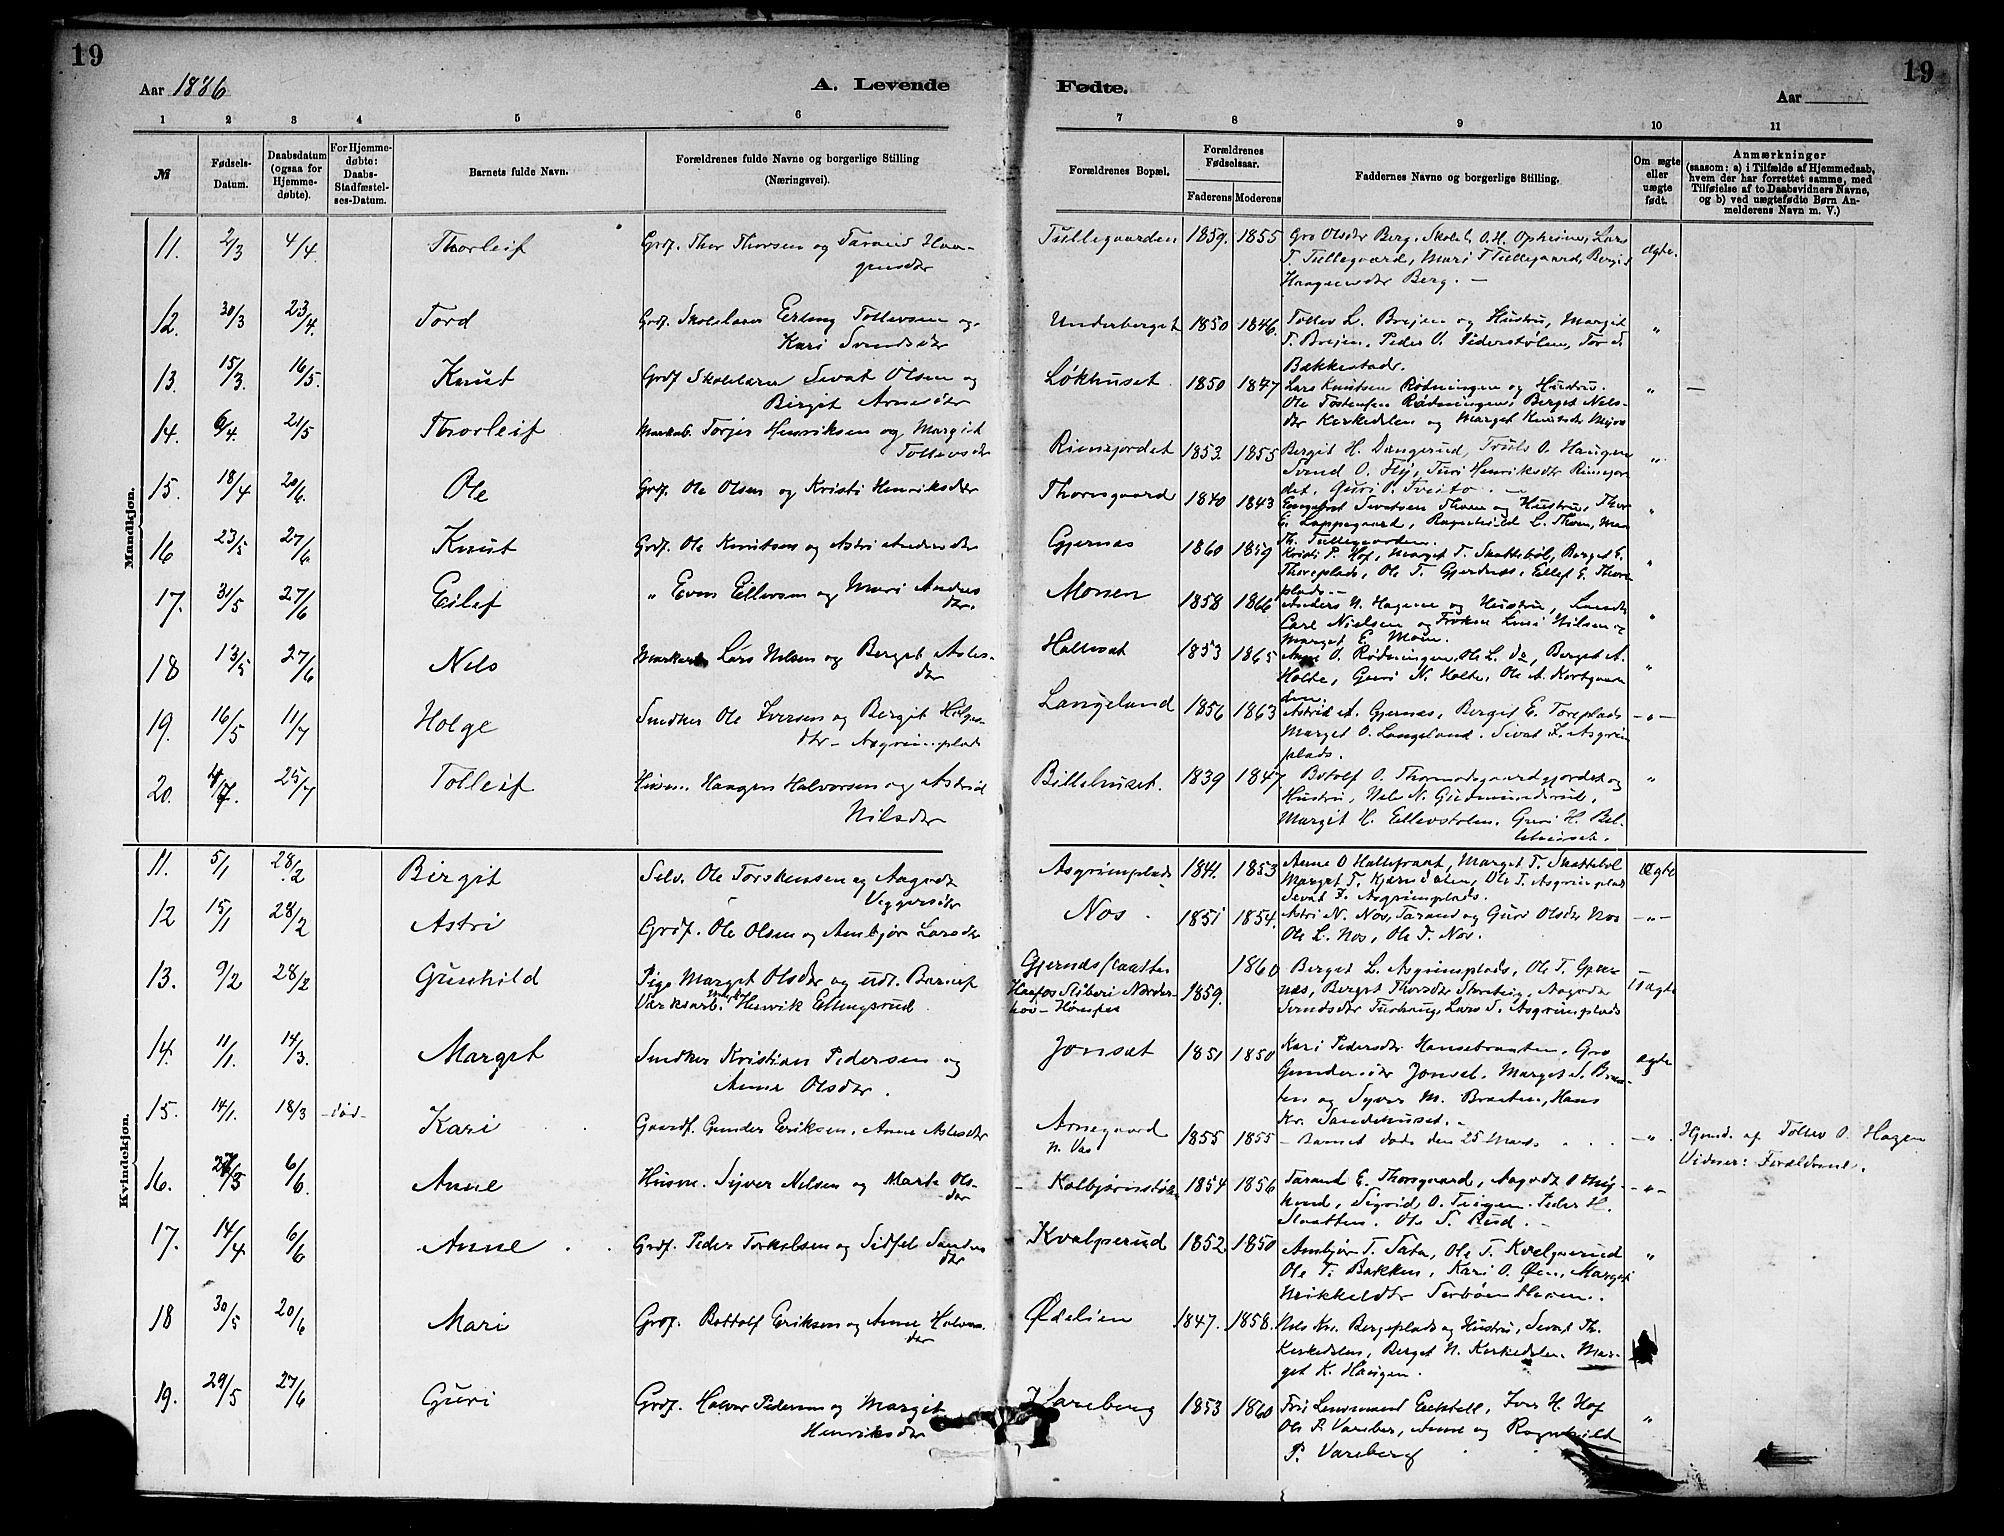 19
19
Aar 1886
A. Levende
Fødte.
Aar
1 2 3 4 5 6
7 8 9 10 11
№
Fødsels-
Datum.
Daabsdatum
(ogsaa for
Hjemme-
døbte).
For Hjemme-
døbte:
Daabs-
Stadfæstel-
ses-Datum.
Barnets fulde Navn.
Forældrenes fulde Navne og borgerlige Stilling
(Næringsvei).
Forældrenes Bopæl.
Forældrenes
Fødselsaar.
Faderens Moderens
Faddernes Navne og borgerlige Stilling.
Om ægte
eller
uægte
født.
Anmærkninger
(saasom: a) i Tilfælde af Hjemmedaab,
hvem der har forrettet samme, med
Tilføielse af to Daabsvidners Navne,
og b) ved uægtefødte Børn An-
melderens Navn m. V.)
Mandkjøn.
11. 2/3 4/4. Thorleif Grdf. Thor Thorsen og Taraid Haa-
gensdtr
Tullegaarden 1859. 1855 Gro Olsdtr Berg, Skolel. O. H. Opheim, Lars
T. Tullegaard, Mari T Tullegaard, Bergit
Haagensdtr Berg. —
ægte.
12. 30/3 23/4. Tord Grdf. Skolelærer Erling Tollevsen og
Kari Svendsdtr
Underberget 1850 1846. Tollev L. Breien og Hustru, Margit
T. Breien, Peder O. Piderstølen, Tor S.
Bakkestad.
"
13. 15/3. 16/5. Knut Grdf Skolelærer Sevat Olsen og
Birgit Arnesdtr
Løkhuset. 1850 1847 Lars Knutsen Rødningen og Hustru.
Ole Tostensen Rødningen, Berget Nils-
dtr Kirkedelen og Marget Knutsdtr
" —
14. 6/4. 21/5 Thorleif Markab. Torjer Henriksen og Margit
Tollevsdtr
Rimejordet 1853. 1855 Bergit H. Dængerud, Truls O. Haugen
Svend O. Hej, Turi Henriksdtr Rimejor-
det, Guri O. Tveito. —
"
15. 18/4 20/6. Ole Grdf. Ole Olsen og Kristi Henriksdtr
Thorsgaard 1840 1843 Engebret Sevatsen Thoen og Hustru, Thor
E. Lappegaard, Ragnhild L. Thoen, Mar
Th. Tullegaarden.
"
16 23/5 27/6 Knut Grdf. Ole Knutsen og Astri Andersdtr
Gjernæs 1860 1859 Kristi P. Hof, Marget T. Skattebøl, Berget E.
Thoreplads, Ole T. Gjerdnæs, Eillef E. Thore
plads. —
"
17. 31/5 27/6 Eilef " Even Eillevsen og Mari Anders
dtr.
Monen 1858 1866 Anders N. Hagene og Hustru,
Carl Nielsen og Frøken Nilsen og
Marget E. Moen.
"
18 13/5 27/6 Nels Markarb Lars Nilsen og Berget Asles-
dtr
Hallesat 1853 1865 Anne O. Rødningen, Ole L. do, Berget A.
Holte, Guri N. Holte, Ole A. Kortgaar
den.
"
19. 16/5 11/7 Holge Snedker Ole Iversen og Bergit Holges-
dtr – Asgrimsplads
Langeland 1856 1863 Astrid A. Gjernæs, Berget E. Toreplads
Marget O. Langeland. Sevat F. Asgrims
plads.
—"—
20. 4/7. 25/7 Tolleif Husm. Haagen Halvorsen og Astrid
Nilsdtr
Billehuset. 1839 1847 Botolf O. Thormodsgaardgjordet og
Hustru, Nels N. Gudmundsrud,
Margit H. Ellevstølen, Guri H. Bel-
lehuset.
"
Kvindekjøn.
11. 5/1 28/2 Birgit Selv. Ole Torstensen og Aagodt
Viggersdtr
Asgrimplads 1841. 1853 Anne O Hallefraat, Marget T. Skattebøl
Marget T. Kjærndalen, Ole T. Asgrimplads
Sevat F. Asgrimplads.
Ægte
12 15/1 28/2 Astri Grdf. Ole Olsen og Ambjør Larsdtr
Nos. 1851 1854. Astri N. Nos, Tarand og Guri Olsdtr Nos
Ole L. Nos, Ole T. Nos.
—"—
13. 9/2 28/2 Gunhild Pige Marget Olsdtr og udl. Barnef.
Værksarb. Henrik Ellingsrud
Gjerndsflaatten 1860
Haafos Sliberi Norder-
hov – Hønefos 1859.
Berget L. Asgrimsplads, Ole T. Gjern-
næs, Berget Thorsdtr Aagodt
Svendsdtr Turhaug, Lars S. Asgrimplads
Uægte
14. 11/1. 14/3. Marget Snedker Kristian Pedersen og
Anne Olsdtr.
Jonsæt 1851 1850 Kari Pedersdtr Hansebraaten. Gro
Gundersdtr Jonset. Marget S. Braa-
ten og Syver M. Braaten, Hans
Kr. Sandehuset. —
ægte
15. 14/1. 18/3 – død – Kari Gaardf. Gunder Eriksen. Anne Aslesdtr
Arnegaard
n. Vas 1855 1855 – Barnet døde den 25 Marts . . . —"—
Hjemd. af Tollev O. Hagen
Vidner: Forældrene.
16. 27/3 6/6. Anne Husm. Syver Nelsen og Marte Ols-
dtr
– Kolbjørnstøle 1854 1856 Tarand E. Thorsgaard, Aagodt O
Sigrid O. Tingen. Peder H.
Slaatten. Ole S. Rud. —
—"—
17. 14/4 6/6 Anne Grdf. Peder Torkelsen og Sidsel Sander
dtr
Kvalgserud 1852 1850 Ambjør T. Sata, Ole T. Kvelgserud
Ole T. Bakken, Kari O. Øen, Marget
Mikkelsdtr
"
18 30/5 20/6 Mari Grdf. Bottolf Eriksen og Anne Halvors
dtr
Ødelien 1847. 1858. Nels Kr. Bergeplads og Hustru, Sevat Th.
Kirkedelen, Berget N. Kirkedelen. Mar-
get K. Haugen.
19. 29/5 27/6 Guri Grdf. Halvor Pedersen og Margit
Henriksdtr
Vareberg 1853 1860 Fru Lensmand Iver H. Hof
Ole P. Vareber, Anne og Ragnhild
P. Vareberg
"